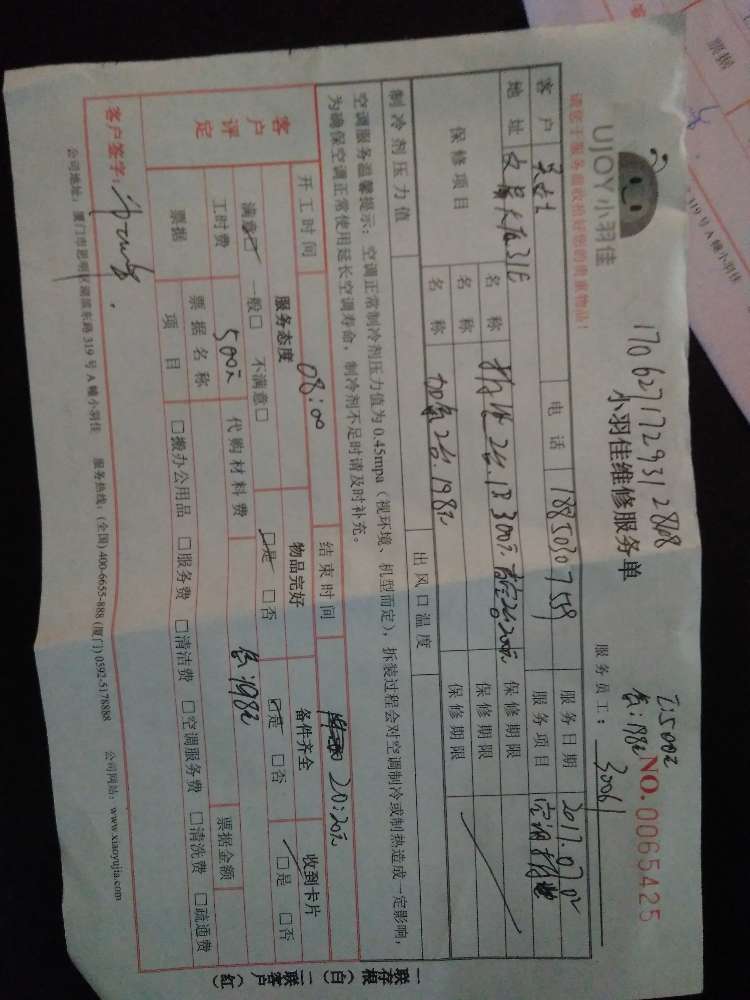 UJOY 小羽佳
请您于服务前收拾好您的贵重物品!
170627172931 28108
小羽佳维修服务单
工:500元
气:198元
NO.0065425
服务员工: 3006
客户 电话 服务日期 2017.07.02
地址 服务项目 空调
保修项目 名称 300元 保修期限
名称 保修期限
名称 加氟2台.198元 保修期限
制冷剂压力值 出风口温度
空调服务温馨提示:空调正常制冷剂压力值为0.45mpa(视环境、机型而定),拆装过程会对空调制冷或制热造成一定影响,
为确保空调正常使用延长空调寿命,制冷剂不足时请及时补充。
开工时间 08:00 结束时间 20:20
客户评定 服务态度 物品完好 备件齐全 收到卡片
满意☑ 一般□ 不满意□ ☑是 □否 ☑是 □否 ☑是 □否
工时费 500元 代购材料费 198元
票据 票据名称 票据金额
项目 □搬办公用品 □服务费 □清洁费 □空调服务费 □清洗费 □疏通费
客户签字:
公司地址:厦门市思明区湖滨东路319号A幢小羽佳 服务热线:(全国)400-6655-888 (厦门)0592-5178888 公司网站:www.xiaoyujia.com
一联存根(白) 二联客户(红)
票据
319号A幢小羽佳